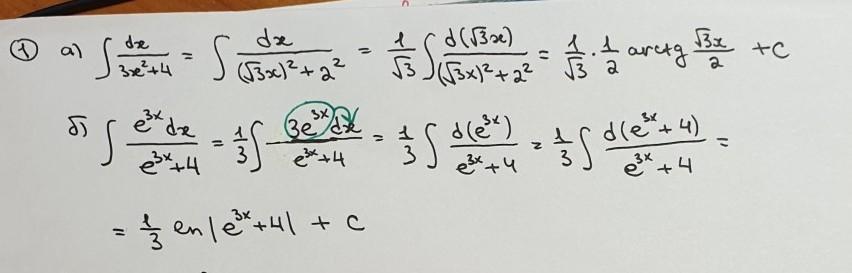 ① а) ∫ dx/(3x²+4) = ∫ dx/((√3x)²+2²) = 1/√3 ∫ d(√3x)/((√3x)²+2²) = 1/√3 · 1/2 arctg √3x/2 + C
б) ∫ e^{3x}dx/(e^{3x}+4) = 1/3 ∫ 3e^{3x}dx/(e^{3x}+4) = 1/3 ∫ d(e^{3x})/(e^{3x}+4) = 1/3 ∫ d(e^{3x}+4)/(e^{3x}+4) =
= 1/3 ln|e^{3x}+4| + C